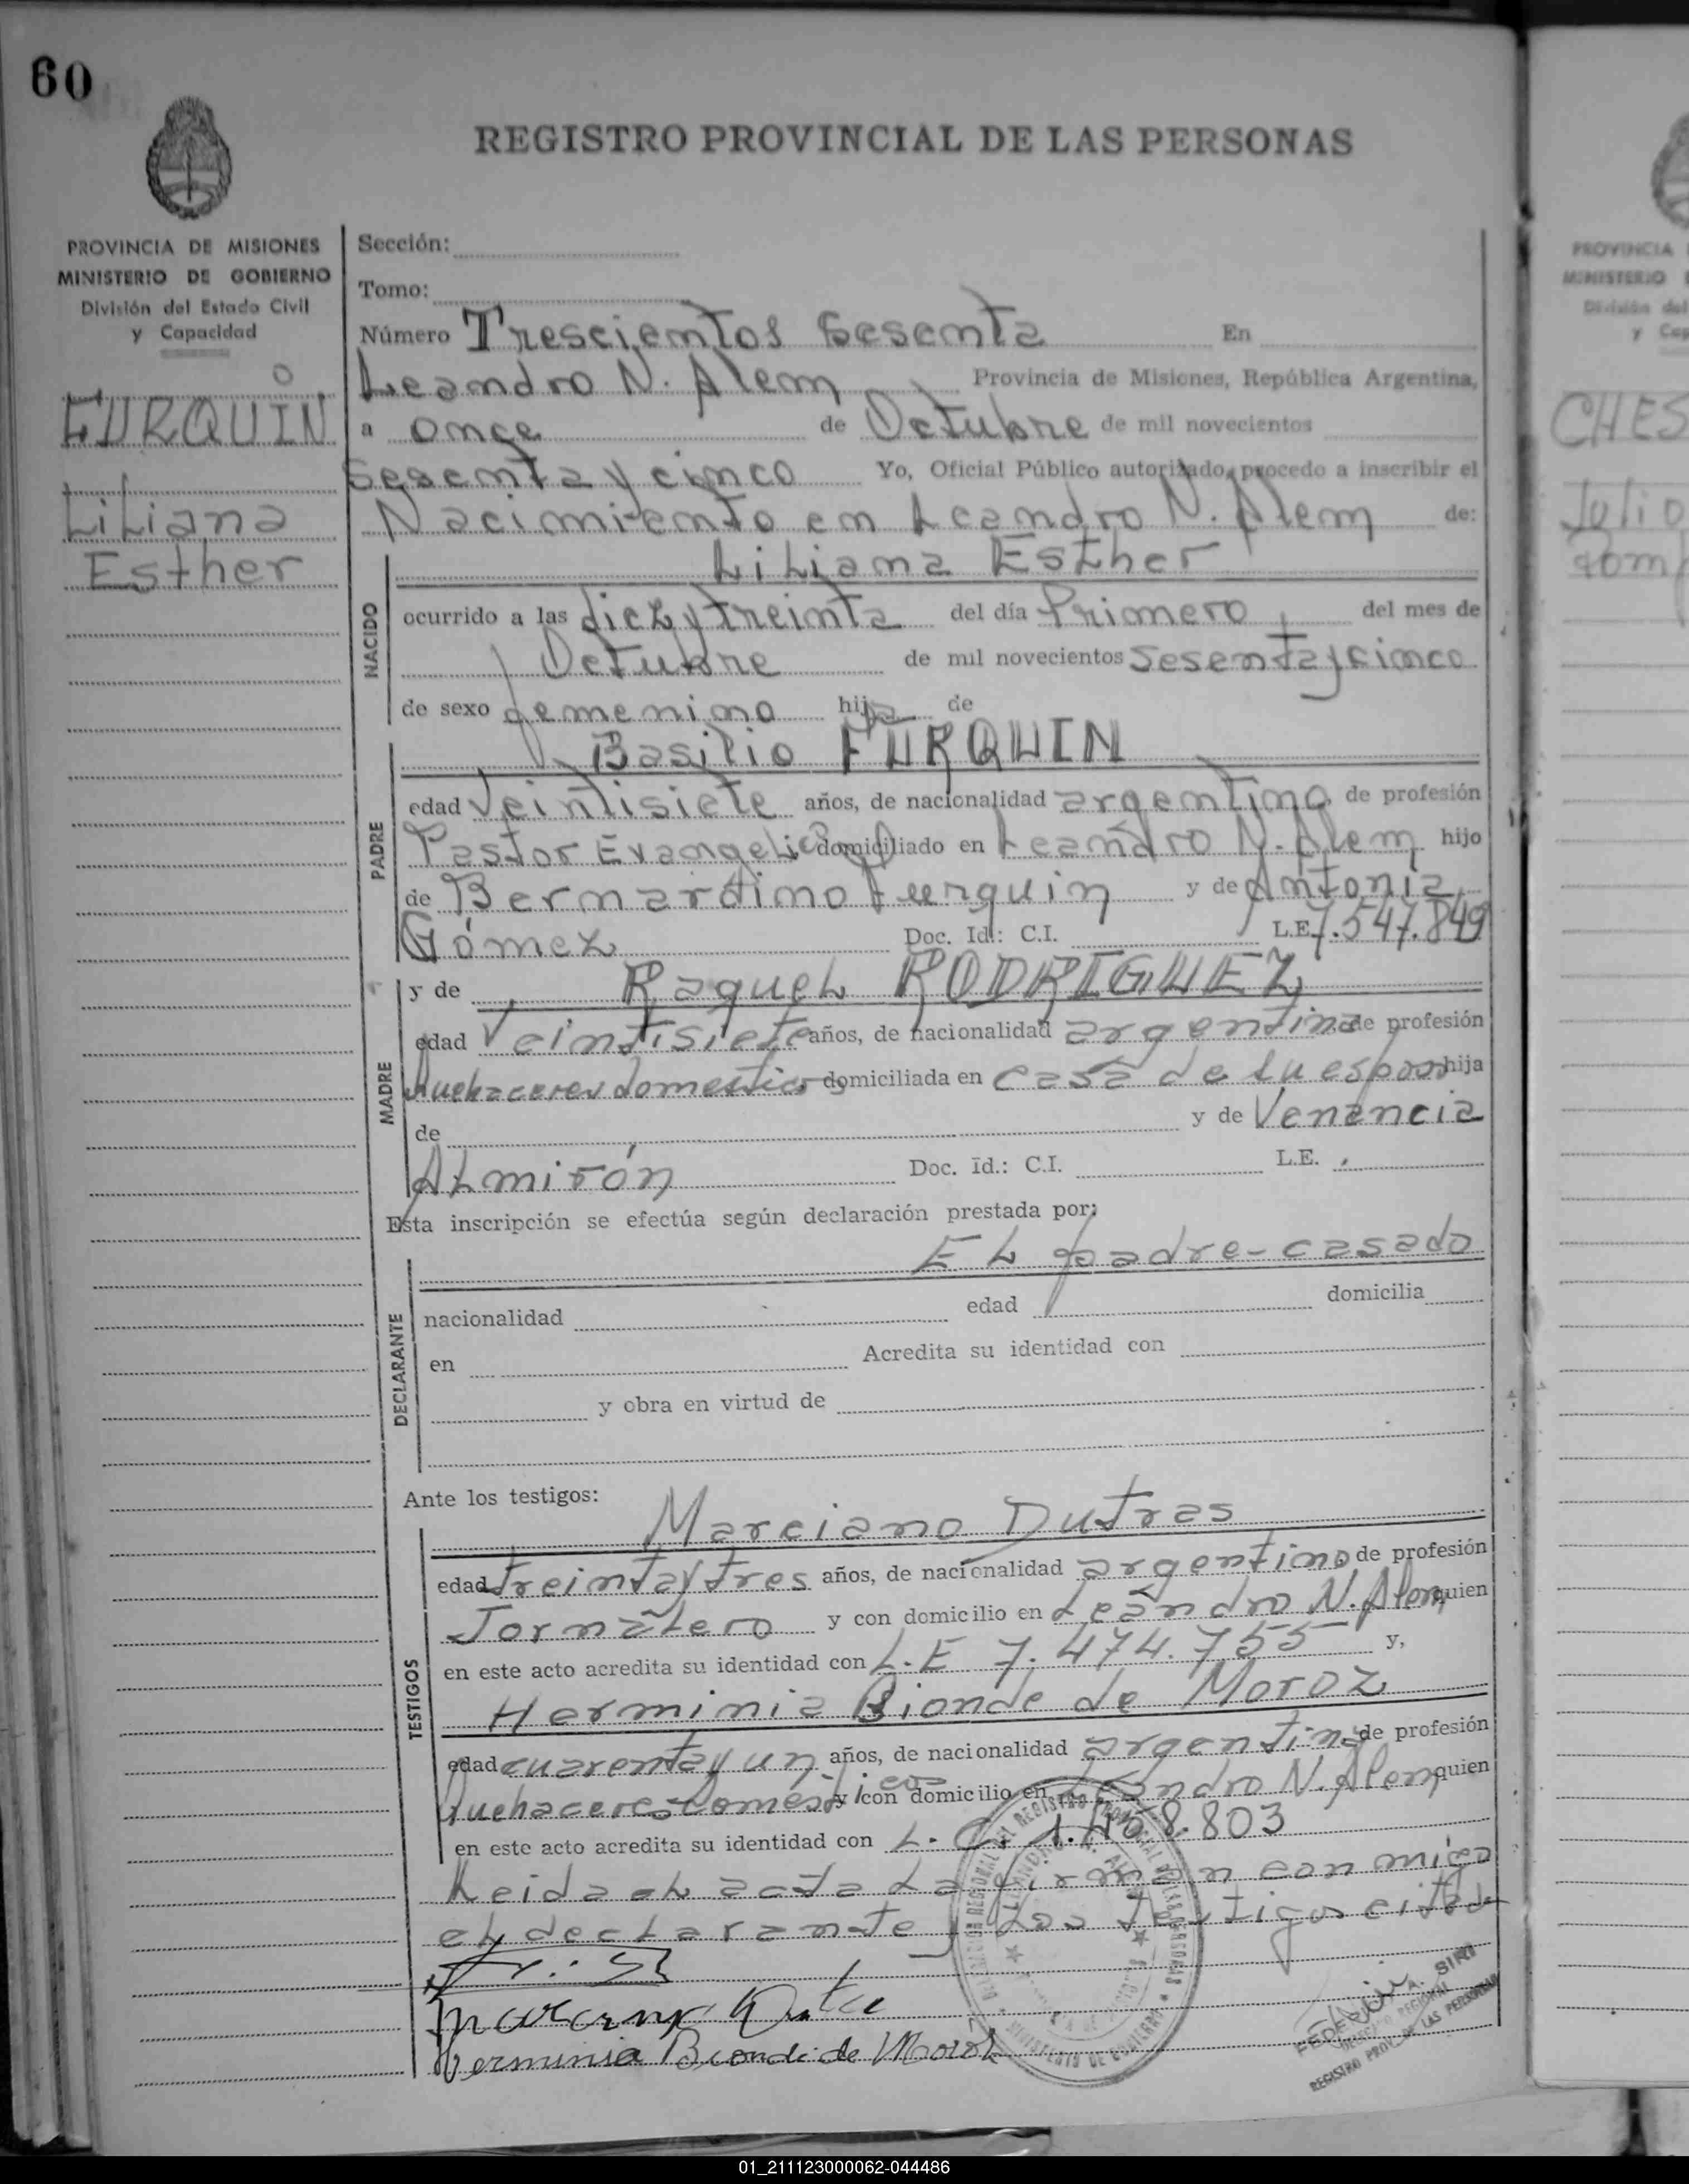 60
REGISTRO PROVINCIAL DE LAS PERSONAS
PROVINCIA DE MISIONES
MINISTERIO DE GOBIERNO
División del Estado Civil
y Capacidad
FURQUIN
Liliana
Esther
Sección:
Tomo:
Número Trescientos Sesenta En
Leandro N. Alem Provincia de Misiones, República Argentina,
a once de Octubre de mil novecientos
Sesenta y cinco Yo, Oficial Público autorizado, procedo a inscribir el
Nacimiento en Leandro N. Alem de:
Liliana Esther
NACIDO
ocurrido a las diez y treinta del día Primero del mes de
Octubre de mil novecientos Sesenta y cinco
de sexo femenino hija de
Basilio FURQUIN
PADRE
edad Veintisiete años, de nacionalidad argentina de profesión
Pastor Evangelico domiciliado en Leandro N. Alem hijo
de Bernardino Furquin y de Antonia
Gómez Doc. Id.: C.I. L.E. 7.547.849
y de Raquel RODRIGUEZ
MADRE
edad Veintisiete años, de nacionalidad argentina de profesión
Quehaceres domesticos domiciliada en casa de su esposo hija
de y de Venancia
Almirón Doc. Id.: C.I. L.E.
Esta inscripción se efectúa según declaración prestada por:
El padre-casado
DECLARANTE
nacionalidad edad domicilia
en Acredita su identidad con
y obra en virtud de
Ante los testigos:
Marciano Dutras
TESTIGOS
edad treinta y tres años, de nacionalidad argentino de profesión
Jornalero y con domicilio en Leandro N. Alem quien
en este acto acredita su identidad con L.E 7.474.755 y,
Herminia Bionde de Moroz
edad cuarenta y un años, de nacionalidad argentina de profesión
Quehaceres Domesticos y con domicilio en Leandro N. Alem quien
en este acto acredita su identidad con L.C. 1.468.803
Leida el acta la firman con migo
el declarante y los testigos citados
Herminia Biondi de Moroz
FEDERICO A. SIRI
DELEGADO REGIONAL
REGISTRO PROV. DE LAS PERSONAS
PROVINCIA
MINISTERIO
División del
y Cap
CHES
Julio
01_211123000062-044486